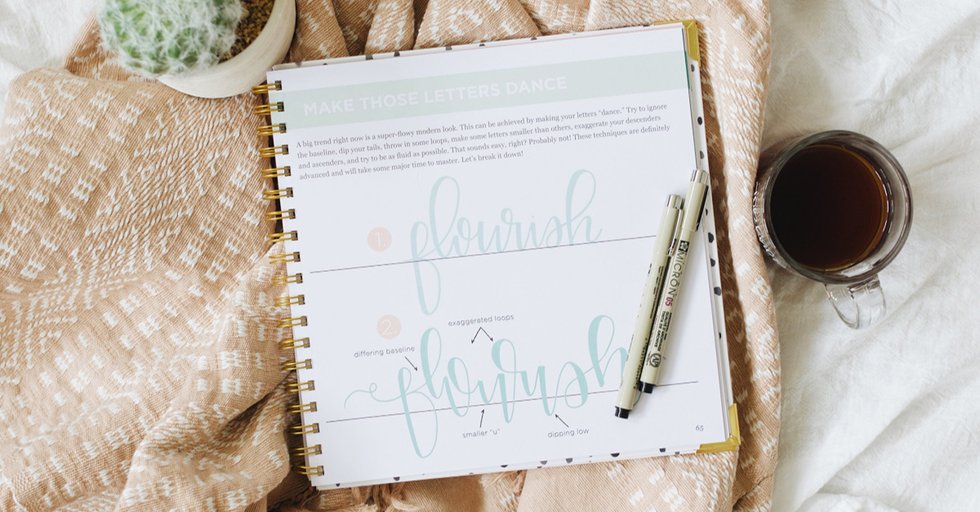 MAKE THOSE LETTERS DANCE
A big trend right now is a super-flowy modern look. This can be achieved by making your letters "dance." Try to ignore
the baseline, dip your tails, throw in some loops, make some letters smaller than others, exaggerate your descenders
and ascenders, and try to be as fluid as possible. That sounds easy, right? Probably not! These techniques are definitely
advanced and will take some major time to master. Let's break it down!
1.
flourish
2.
exaggerated loops
differing baseline
flourish
smaller "u"
dipping low
65
MICRON 05